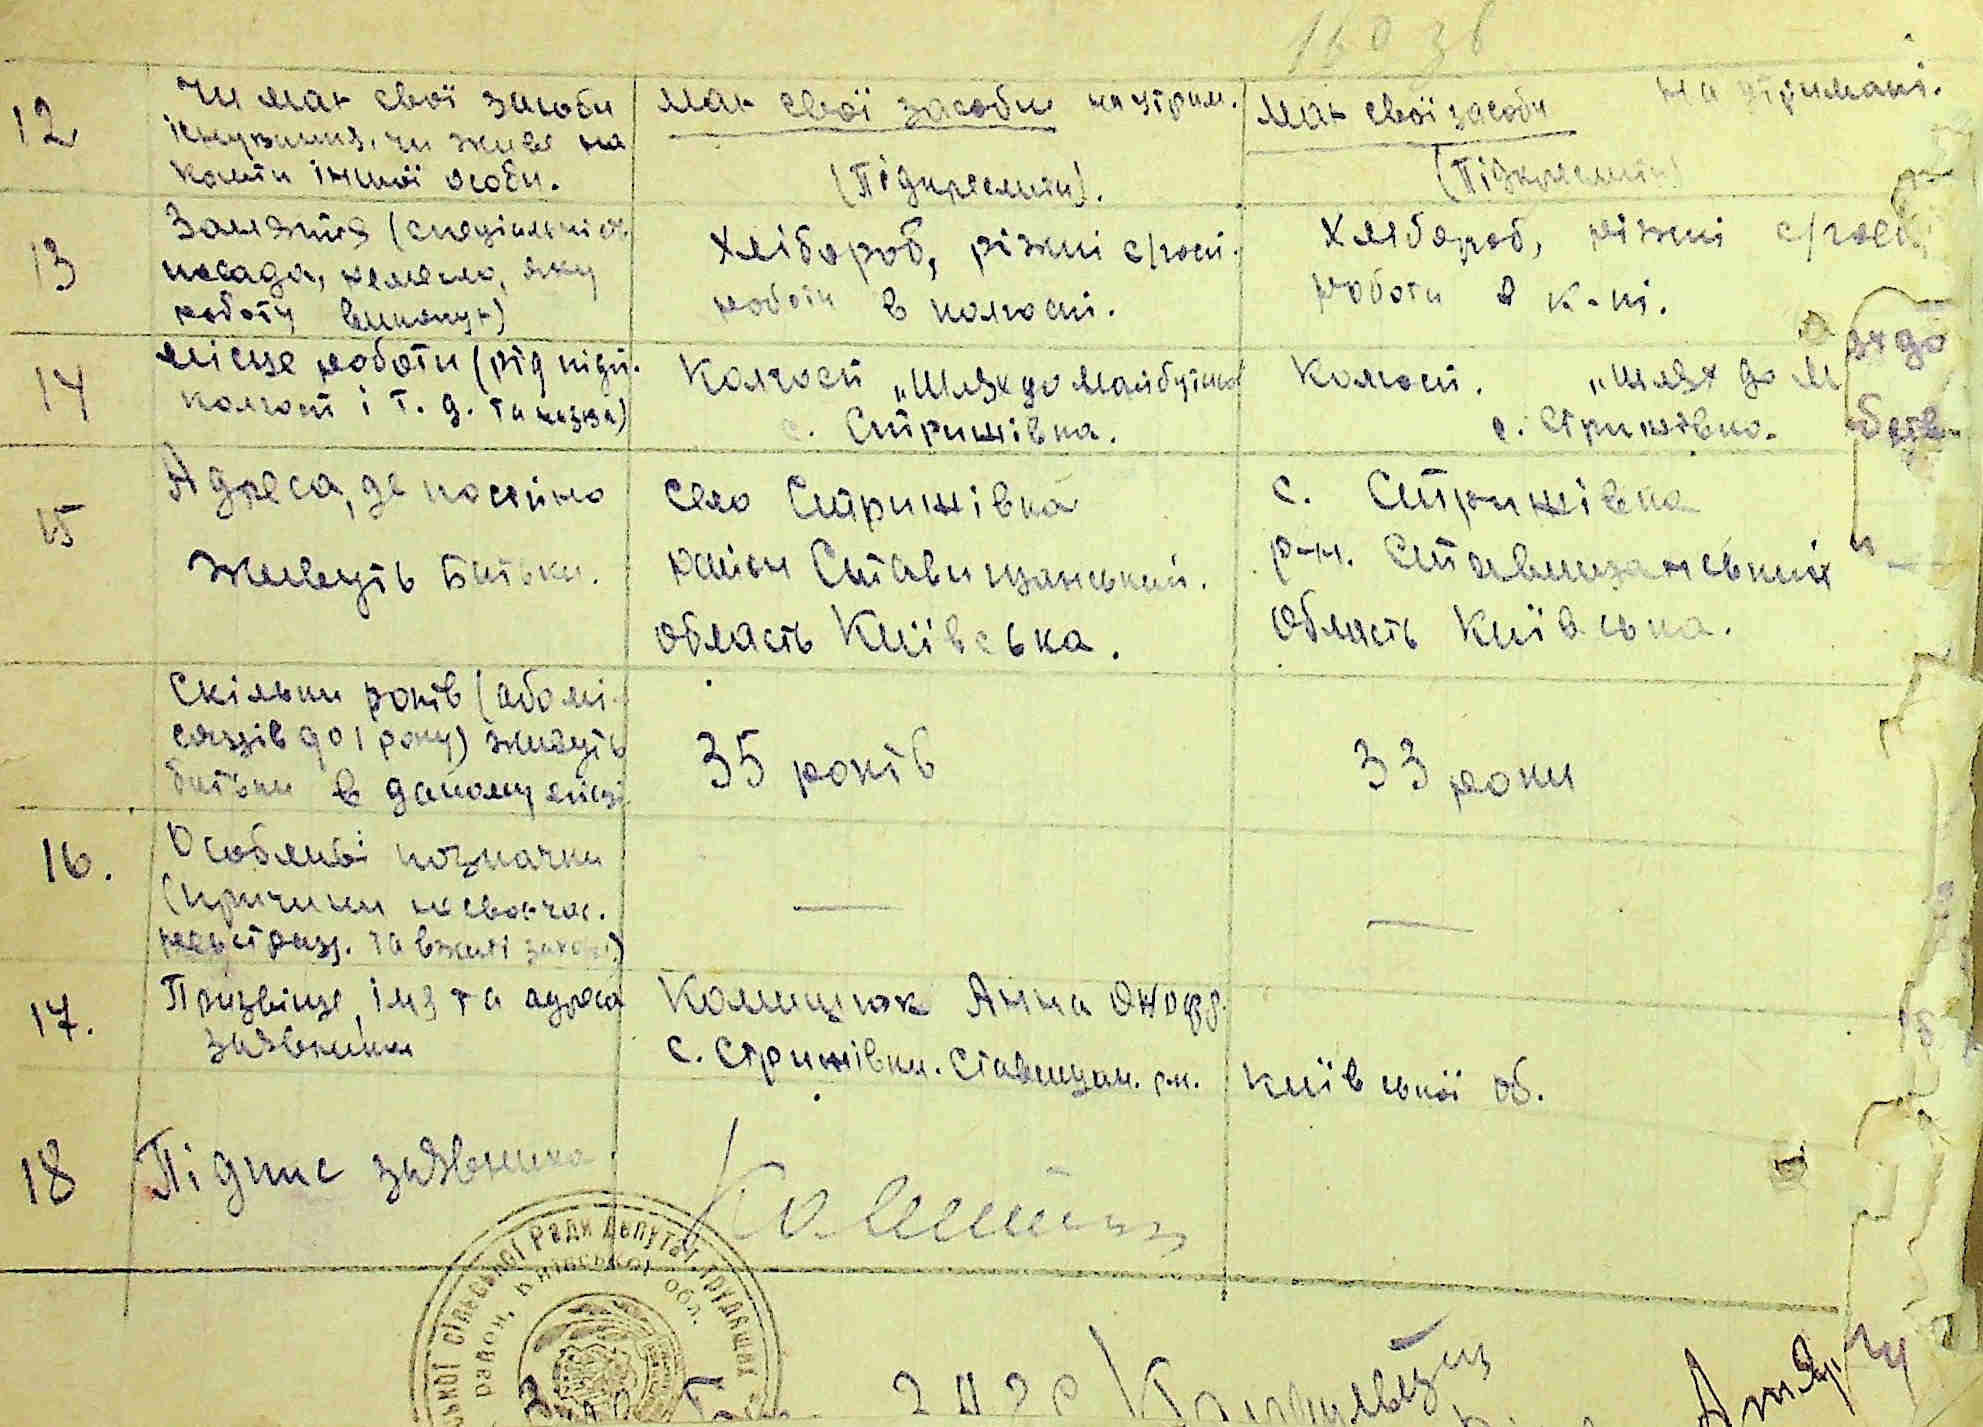 160 зв
12. Чи має свої засоби
існування, чи живе на
кошти іншої особи.
має свої засоби на утрим.
(Підкреслити).
має свої засоби на утримані.
(Підкреслити)
13 Заняття (спеціальність
посада, ремесло, яку
роботу виконує)
Хлібороб, ріжні с/госп.
роботи в колгоспі.
Хлібороб, ріжні с/госп.
роботи в к-пі.
14 Місце роботи (під
колгосп і т. д. та назва)
Колгосп „Шлях до майбутньо
с. Стрижівка.
Колгосп. „Шлях до м
с. Стрижівка.
15 Адреса, де постійно
живуть батьки.
село Стрижівка
район Ставищанський.
область Київська.
с. Стрижівка
р-н. Ставищанський
область Київська.
Скільки років (або мі-
сяців до 1 року) живуть
батьки в даному місці
35 років
33 роки
16. Особливі позначки
(причини несвоєчас.
реєстрац. та вжиті заходи)
—
—
17. Призвіще, імя та адреса
заявника
Колищюк Анна Онофр.
с. Стрижівки. Ставищан. р-н. Київської об.
18 Підпис заявника
ської сільської ради депутат. трудящих
район, Київської обл.